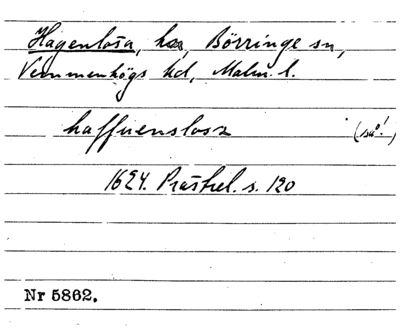 Hagenlösa, hsa, Börringe sn,
Vemmenhögs hd, Malm. l.
haffuenslosz (så!)
1624. Prästrel. s. 120
Nr 5862.